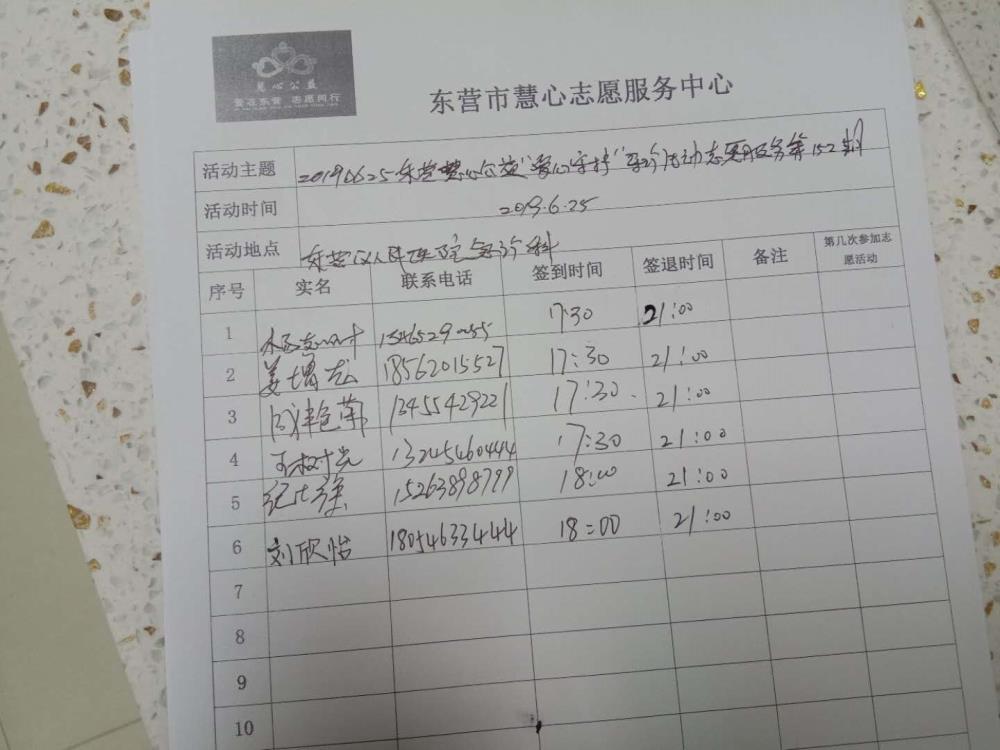 慧心公益
爱在东营 志愿同行
东营市慧心志愿服务中心
活动主题 20190625东营慧心公益"爱心守护"导诊活动志愿服务第152期
活动时间 2019.6.25
活动地点 东营区人民医院急诊科
序号 实名 联系电话 签到时间 签退时间 备注 第几次参加志愿活动
1 17:30 21:00
2 姜增龙 18562015527 17:30 21:00
3 艳苹 13455429221 17:30 21:00
4 王树光 13245460444 17:30 21:00
5 纪 15263898799 18:00 21:00
6 刘欣怡 18054633444 18:00 21:00
7
8
9
10